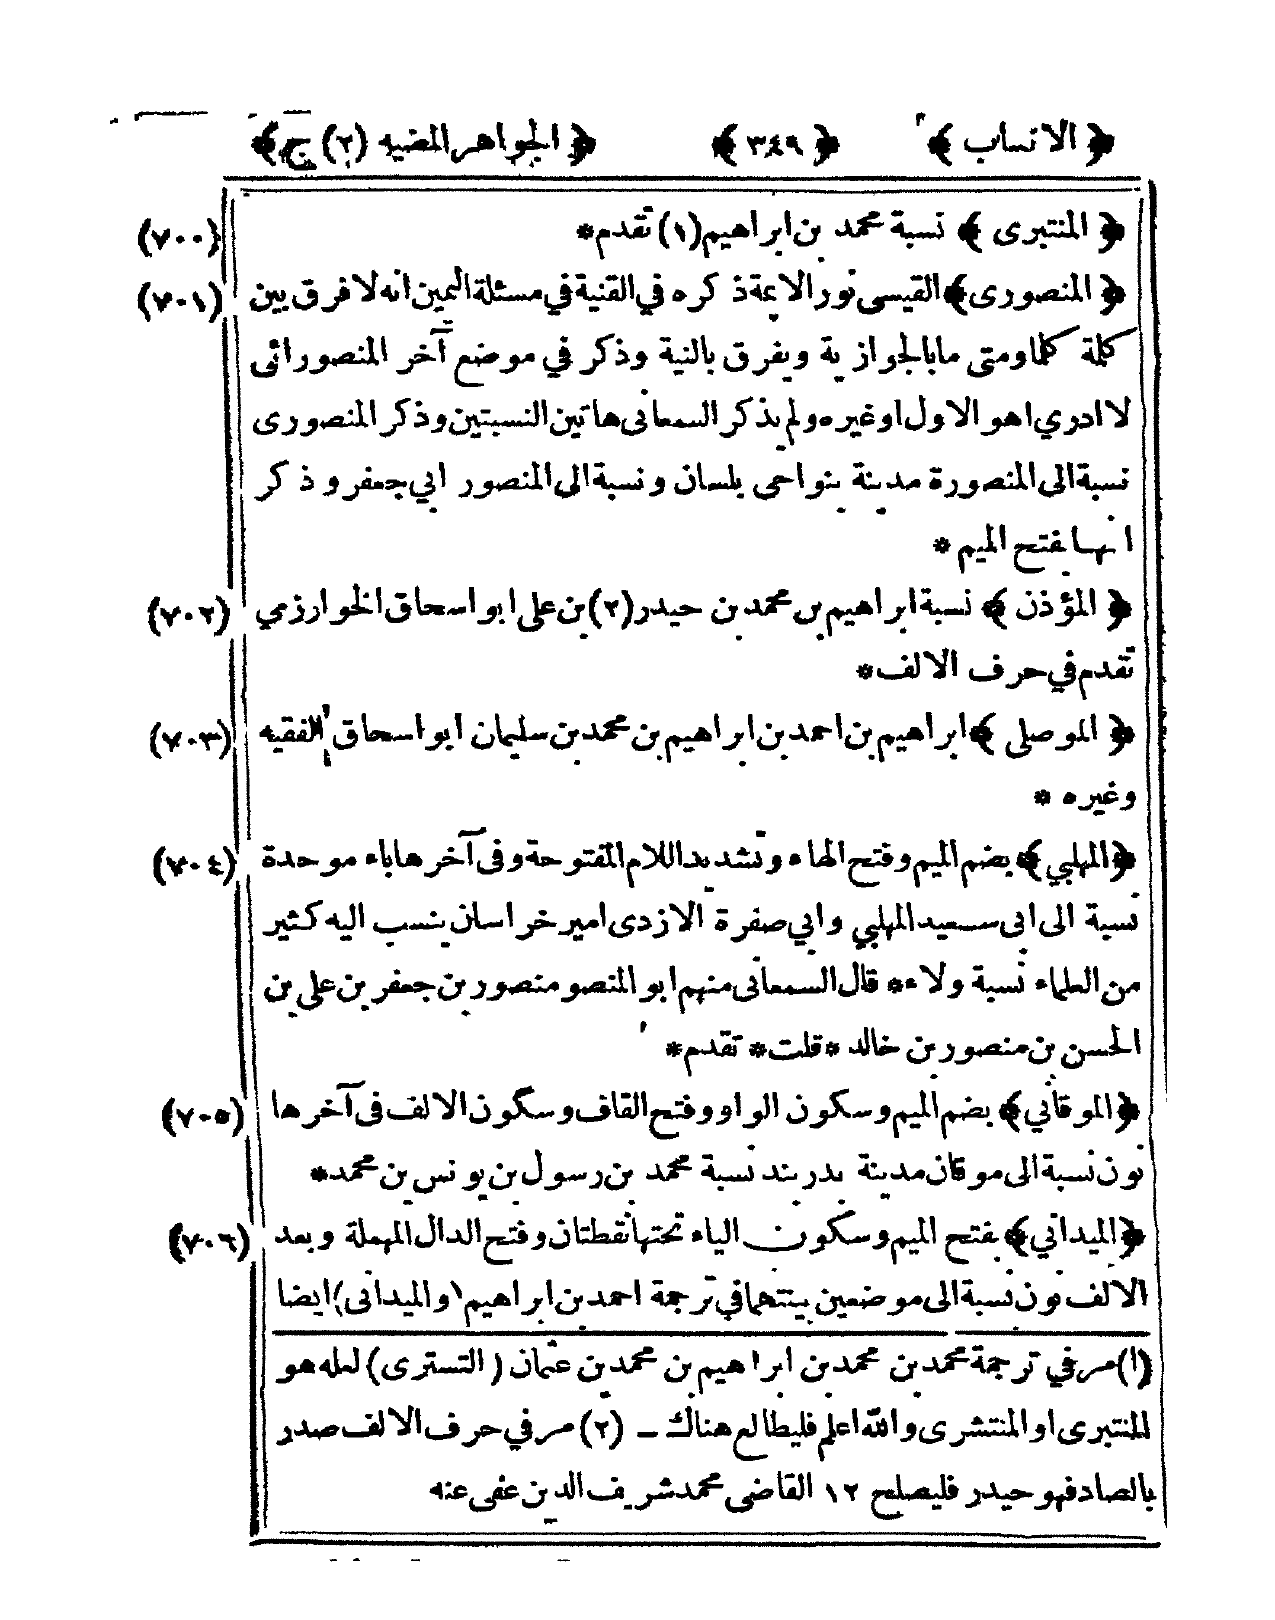 ﴿ الانساب ﴾ ﴿ ٣٤٩ ﴾ ﴿ الجواهر المضيه (٢) ج ﴾
﴿ المنتبرى ﴾ نسبة محمد بن ابراهيم (١) تقدم * (٧٠٠)
﴿ المنصورى ﴾ القيسى نور الائمة ذكره في القنية في مسئلة اليمين انه لا فرق بين (٧٠١)
كلمة كلما ومتى ما بالجوازية ويفرق بالنية وذكر في موضع آخر المنصورائى
لا ادري اهو الاول او غيره ولم يذكر السمعانى هاتين النسبتين وذكر المنصورى
نسبة الى المنصورة مدينة بنواحى بلسان ونسبة الى المنصور ابي جعفر وذكر
انها بفتح الميم *
﴿ المؤذن ﴾ نسبة ابراهيم بن محمد بن حيدر (٢) بن على ابو اسحاق الخوارزمي (٧٠٢)
تقدم في حرف الالف *
﴿ الموصلى ﴾ ابراهيم بن احمد بن ابراهيم بن محمد بن سليمان ابو اسحاق الفقيه (٧٠٣)
وغيره *
﴿ المهلبي ﴾ بضم الميم وفتح الهاء وتشديد اللام المفتوحة وفى آخرها باء موحدة (٧٠٤)
نسبة الى ابى سعيد المهلبي وابي صفرة الازدى امير خراسان ينسب اليه كثير
من العلماء نسبة ولاء * قال السمعانى منهم ابو المنصو منصور بن جعفر بن على بن
الحسن بن منصور بن خالد * قلت * تقدم *
﴿ الموقاني ﴾ بضم الميم وسكون الواو وفتح القاف وسكون الالف فى آخرها (٧٠٥)
نون نسبة الى موقان مدينة بدربند نسبة محمد بن رسول بن يونس بن محمد *
﴿ الميداني ﴾ بفتح الميم وسكون الياء تحتها نقطتان وفتح الدال المهملة وبعد (٧٠٦)
الالف نون نسبة الى موضعين بينتهما في ترجمة احمد بن ابراهيم (والميدانى) ايضا
(١) مر في ترجمة محمد بن محمد بن ابراهيم بن محمد بن عثمان (التسترى) لعله هو
المنتبرى او المنتشرى والله اعلم فليطالع هناك – (٢) مر في حرف الالف صدر
بالصاد فهو حيدر فليصلح ١٢ القاضى محمد شريف الدين عفى عنه